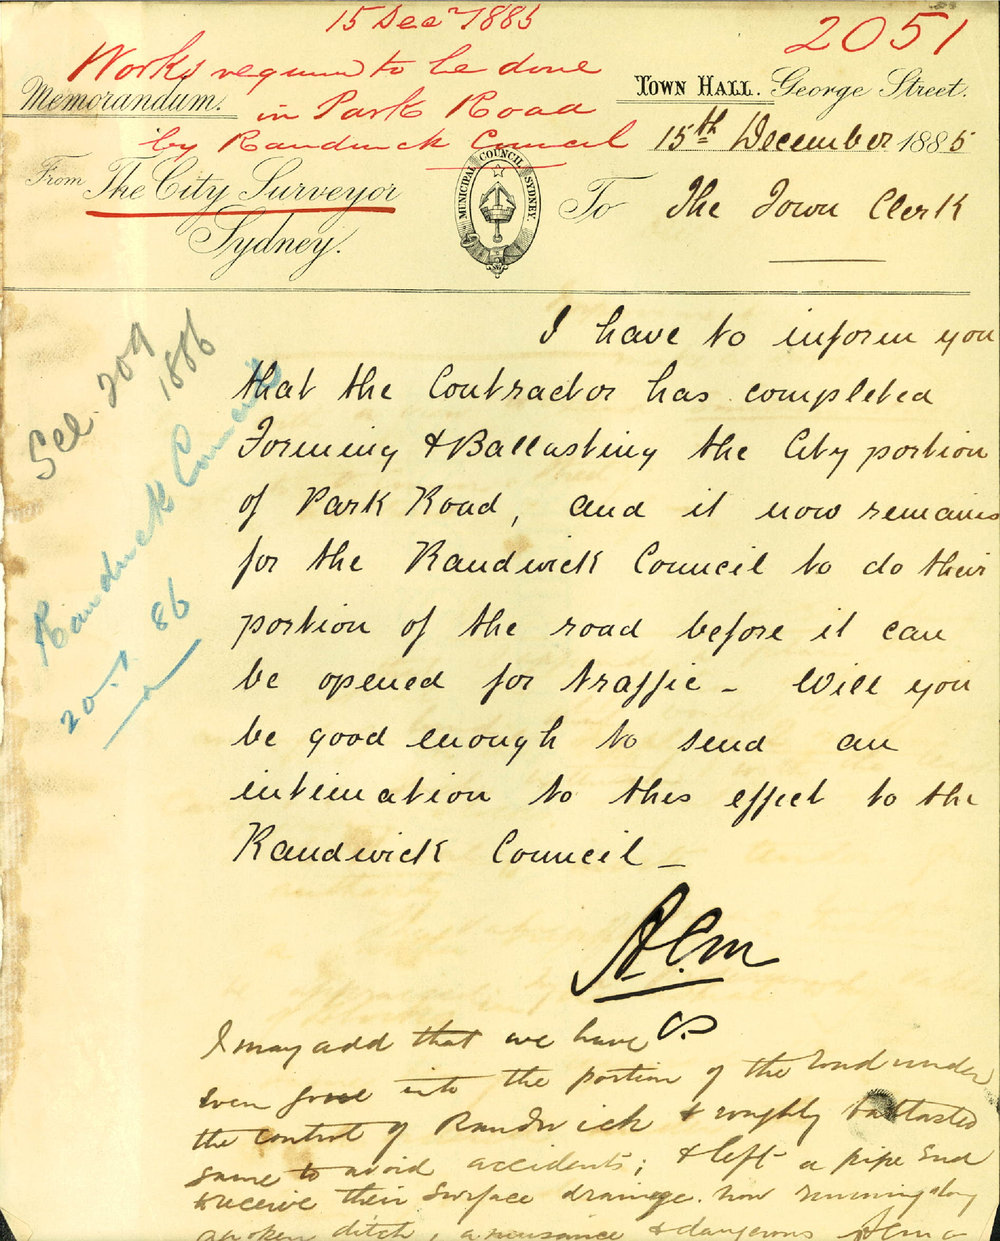 15 Decr 1885
2051
Works required to be done
in Park Road
by Randwick Council
Memorandum.
TOWN HALL. George Street.
15th December 1885
From The City Surveyor
Sydney.
MUNICIPAL COUNCIL SYDNEY.
To The Town Clerk
See 209
1886
Randwick Council
20.1.86
I have to inform you
that the Contractor has completed
Forming & Ballasting the City portion
of Park Road, and it now remains
for the Randwick Council to do their
portion of the road before it can
be opened for traffic - Will you
be good enough to send an
intimation to this effect to the
Randwick Council -
ACM
CS
I may add that we have
even gone into the portion of the road under
the control of Randwick & roughly ballasted
same to avoid accidents; & left a pipe end
to receive their surface drainage now running along
an open ditch, a nuisance & dangerous